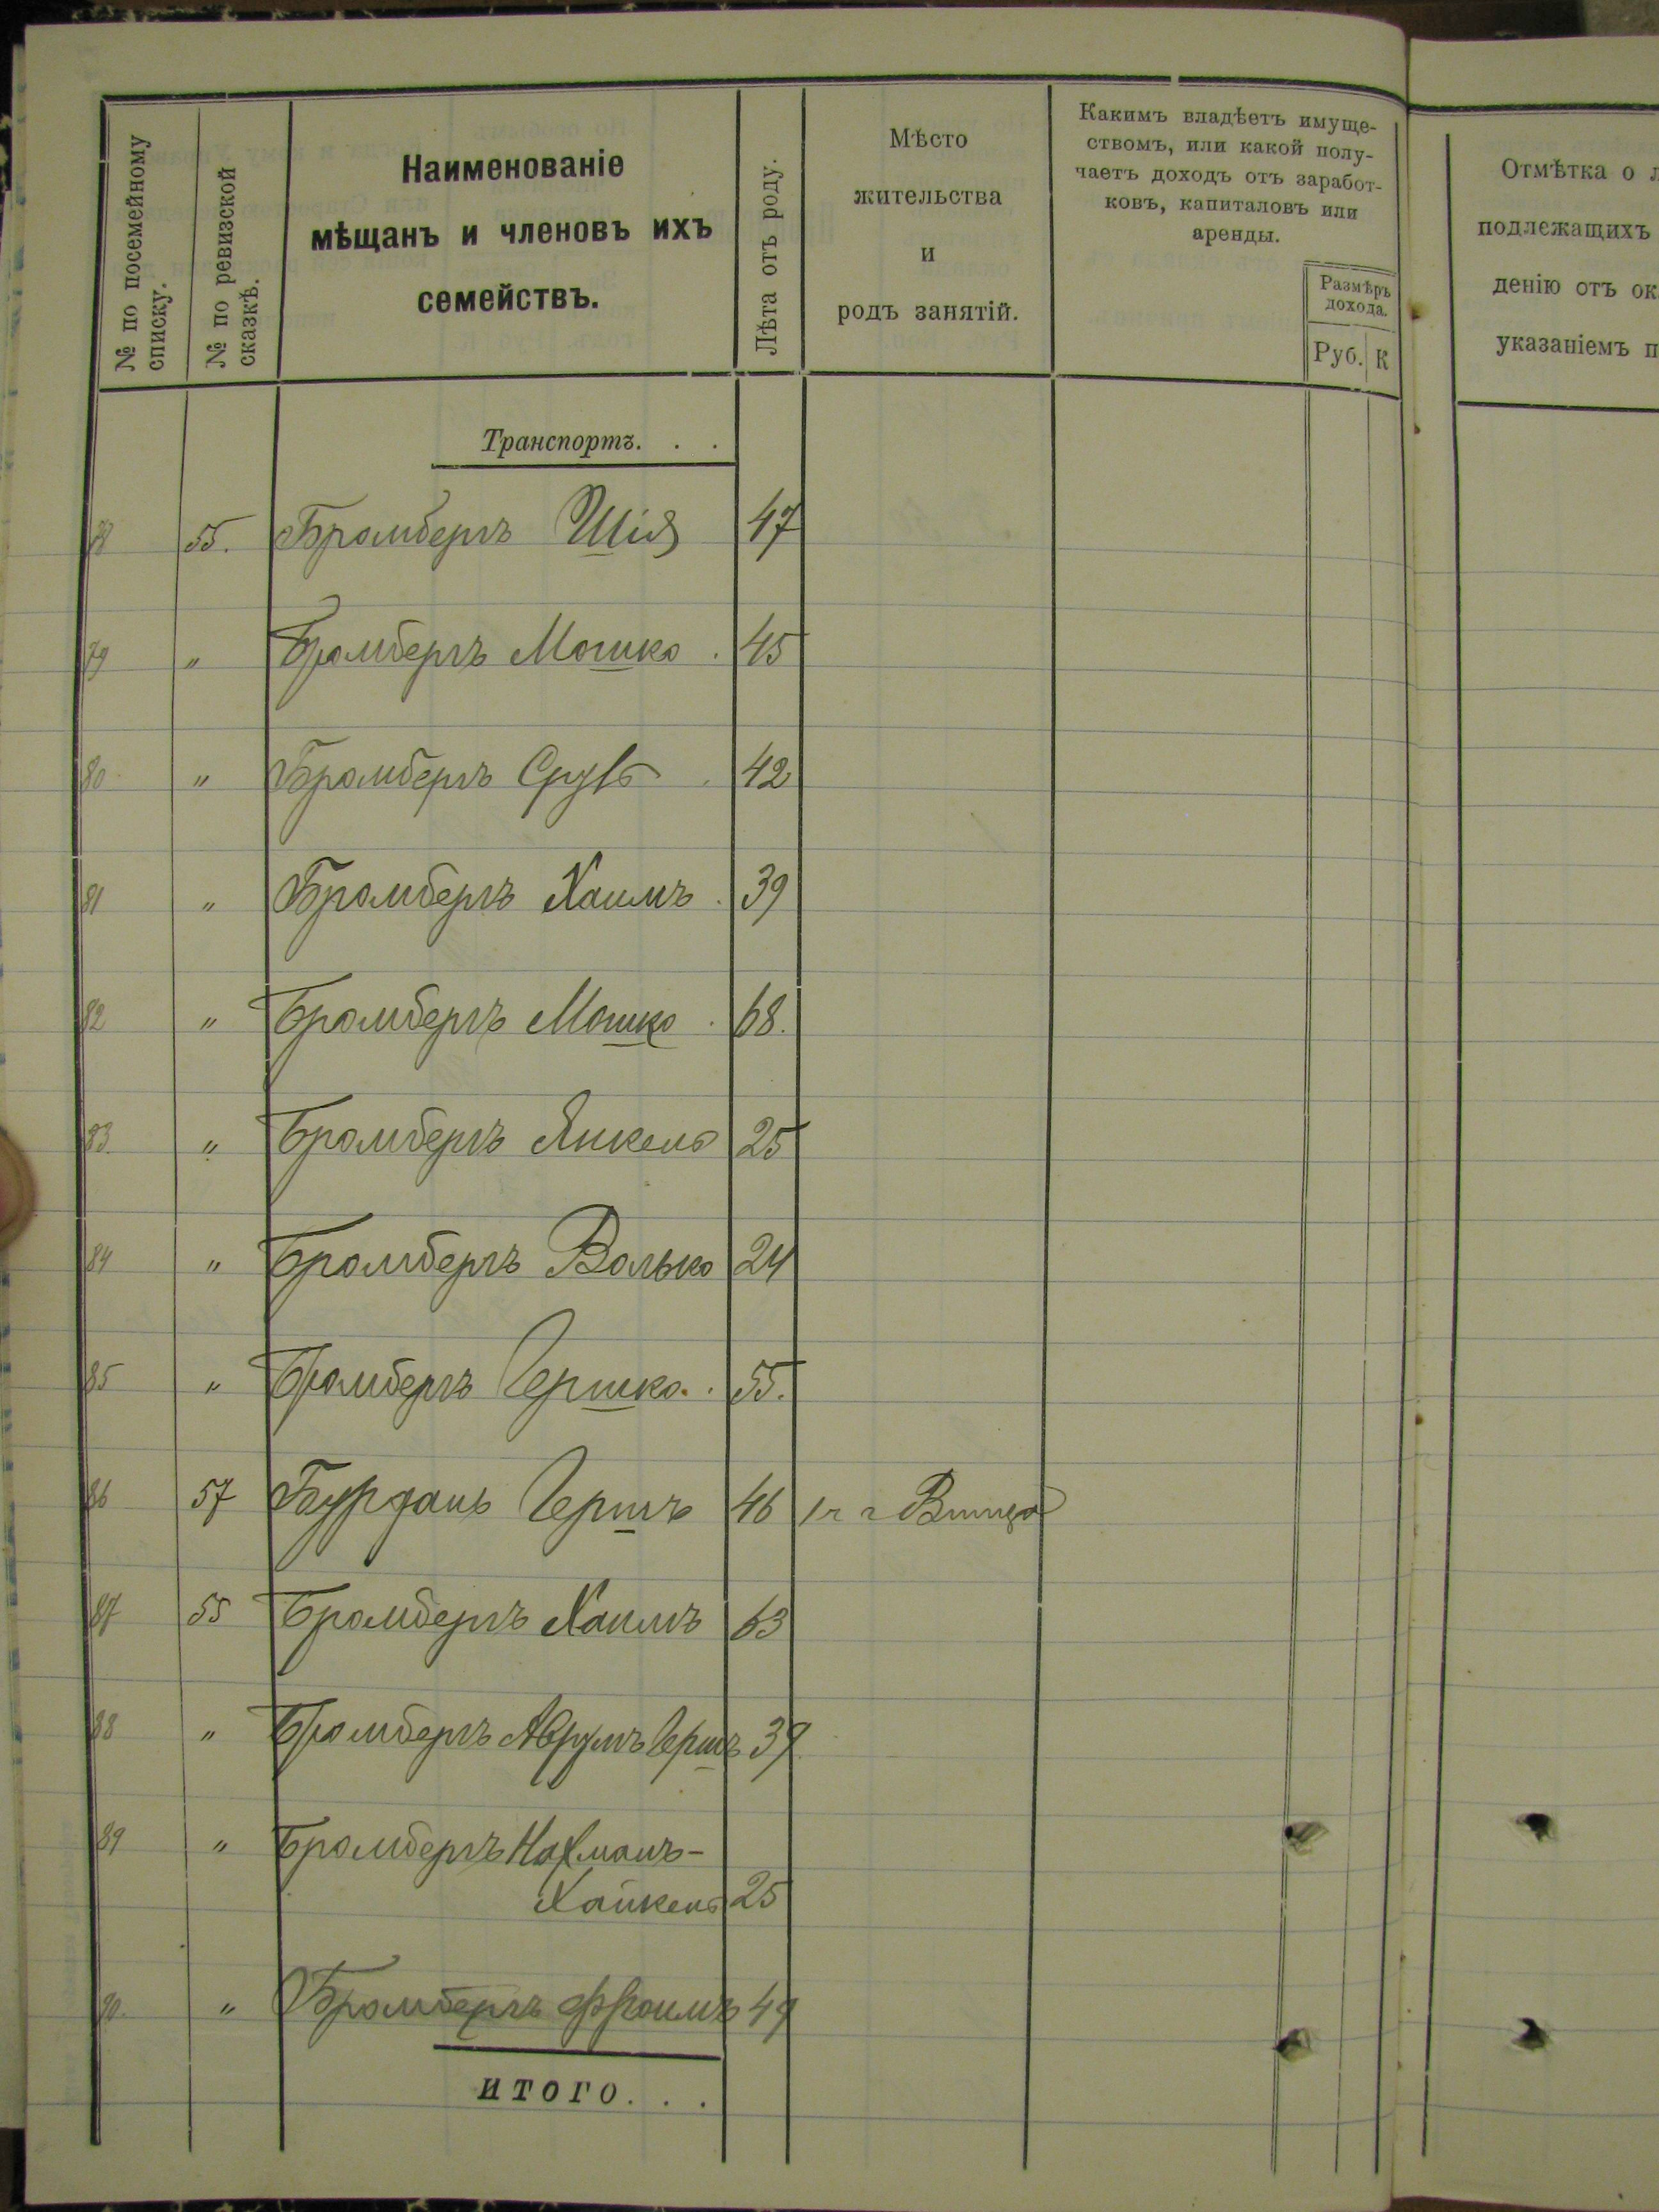 № по посемейному списку.
№ по ревизской сказкѣ.
Наименованіе
мѣщанъ и членовъ ихъ
семействъ.
Лѣта отъ роду.
Мѣсто
жительства
и
родъ занятій.
Какимъ владѣетъ имуще-
ствомъ, или какой полу-
чаетъ доходъ отъ заработ-
ковъ, капиталовъ или
аренды.
Размѣръ
дохода.
Руб. К
Отмѣтка о л
подлежащихъ
денію отъ ок
указаніемъ п
Транспортъ. . .
78 55. Бромбергъ Шія 47
79 " Бромбергъ Мошко . 45
80 " Бромбергъ Сруль . 42
81 " Бромбергъ Хаимъ . 39
82 " Бромбергъ Мошко . 68.
83. " Бромбергъ Янкель 25
84 " Бромбергъ Волько 24
85 " Бромбергъ Гершко. . 55.
86 57 Бурданъ Гершъ 46
87 55 Бромбергъ Хаимъ 63
88 " Бромбергъ Аврумъ Гершъ 39
89 " Бромбергъ Нахманъ-
Хайкель 25
90. " Бромбергъ Фроимъ 49
ИТОГО. . .